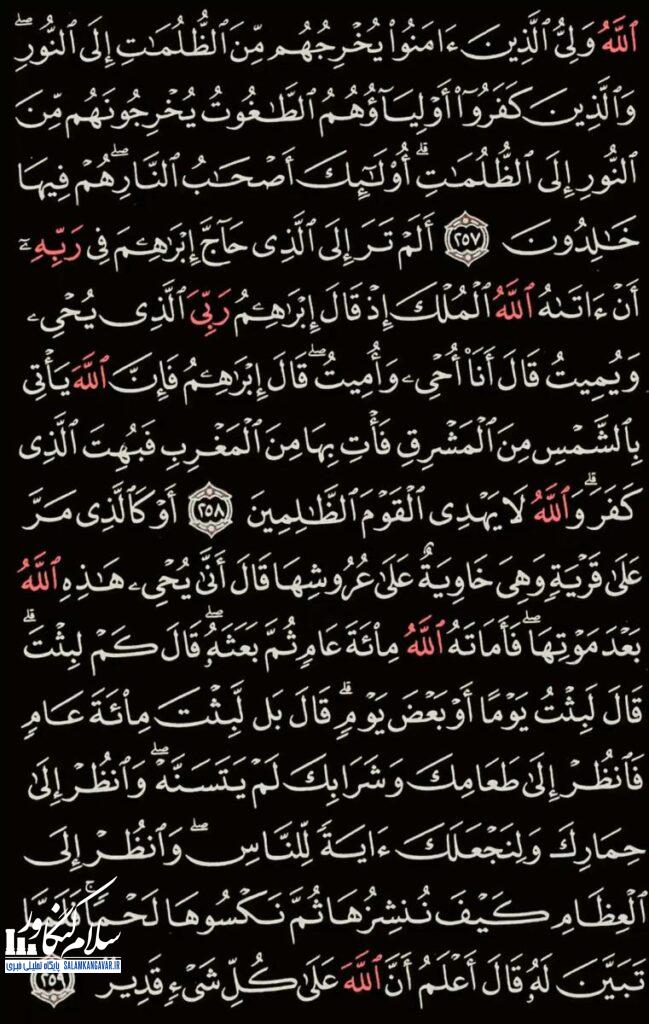 ٱللَّهُ وَلِيُّ ٱلَّذِينَ ءَامَنُوا۟ يُخْرِجُهُم مِّنَ ٱلظُّلُمَٰتِ إِلَى ٱلنُّورِ ۖ
وَٱلَّذِينَ كَفَرُوٓا۟ أَوْلِيَآؤُهُمُ ٱلطَّٰغُوتُ يُخْرِجُونَهُم مِّنَ
ٱلنُّورِ إِلَى ٱلظُّلُمَٰتِ ۗ أُو۟لَٰٓئِكَ أَصْحَٰبُ ٱلنَّارِ ۖ هُمْ فِيهَا
خَٰلِدُونَ ٢٥٧ أَلَمْ تَرَ إِلَى ٱلَّذِى حَآجَّ إِبْرَٰهِۦمَ فِى رَبِّهِۦٓ
أَنْ ءَاتَىٰهُ ٱللَّهُ ٱلْمُلْكَ إِذْ قَالَ إِبْرَٰهِۦمُ رَبِّىَ ٱلَّذِى يُحْىِۦ
وَيُمِيتُ قَالَ أَنَا۠ أُحْىِۦ وَأُمِيتُ ۖ قَالَ إِبْرَٰهِۦمُ فَإِنَّ ٱللَّهَ يَأْتِى
بِٱلشَّمْسِ مِنَ ٱلْمَشْرِقِ فَأْتِ بِهَا مِنَ ٱلْمَغْرِبِ فَبُهِتَ ٱلَّذِى
كَفَرَ ۗ وَٱللَّهُ لَا يَهْدِى ٱلْقَوْمَ ٱلظَّٰلِمِينَ ٢٥٨ أَوْ كَٱلَّذِى مَرَّ
عَلَىٰ قَرْيَةٍ وَهِىَ خَاوِيَةٌ عَلَىٰ عُرُوشِهَا قَالَ أَنَّىٰ يُحْىِۦ هَٰذِهِ ٱللَّهُ
بَعْدَ مَوْتِهَا ۖ فَأَمَاتَهُ ٱللَّهُ مِا۟ئَةَ عَامٍ ثُمَّ بَعَثَهُۥ ۖ قَالَ كَمْ لَبِثْتَ ۖ
قَالَ لَبِثْتُ يَوْمًا أَوْ بَعْضَ يَوْمٍ ۖ قَالَ بَل لَّبِثْتَ مِا۟ئَةَ عَامٍ
فَٱنظُرْ إِلَىٰ طَعَامِكَ وَشَرَابِكَ لَمْ يَتَسَنَّهْ ۖ وَٱنظُرْ إِلَىٰ
حِمَارِكَ وَلِنَجْعَلَكَ ءَايَةً لِّلنَّاسِ ۖ وَٱنظُرْ إِلَى
ٱلْعِظَامِ كَيْفَ نُنشِزُهَا ثُمَّ نَكْسُوهَا لَحْمًا ۚ فَلَمَّا
تَبَيَّنَ لَهُۥ قَالَ أَعْلَمُ أَنَّ ٱللَّهَ عَلَىٰ كُلِّ شَىْءٍ قَدِيرٌ ٢٥٩
سلام کنگاور
پایگاه تحلیلی خبری SALAMKANGAVAR.IR